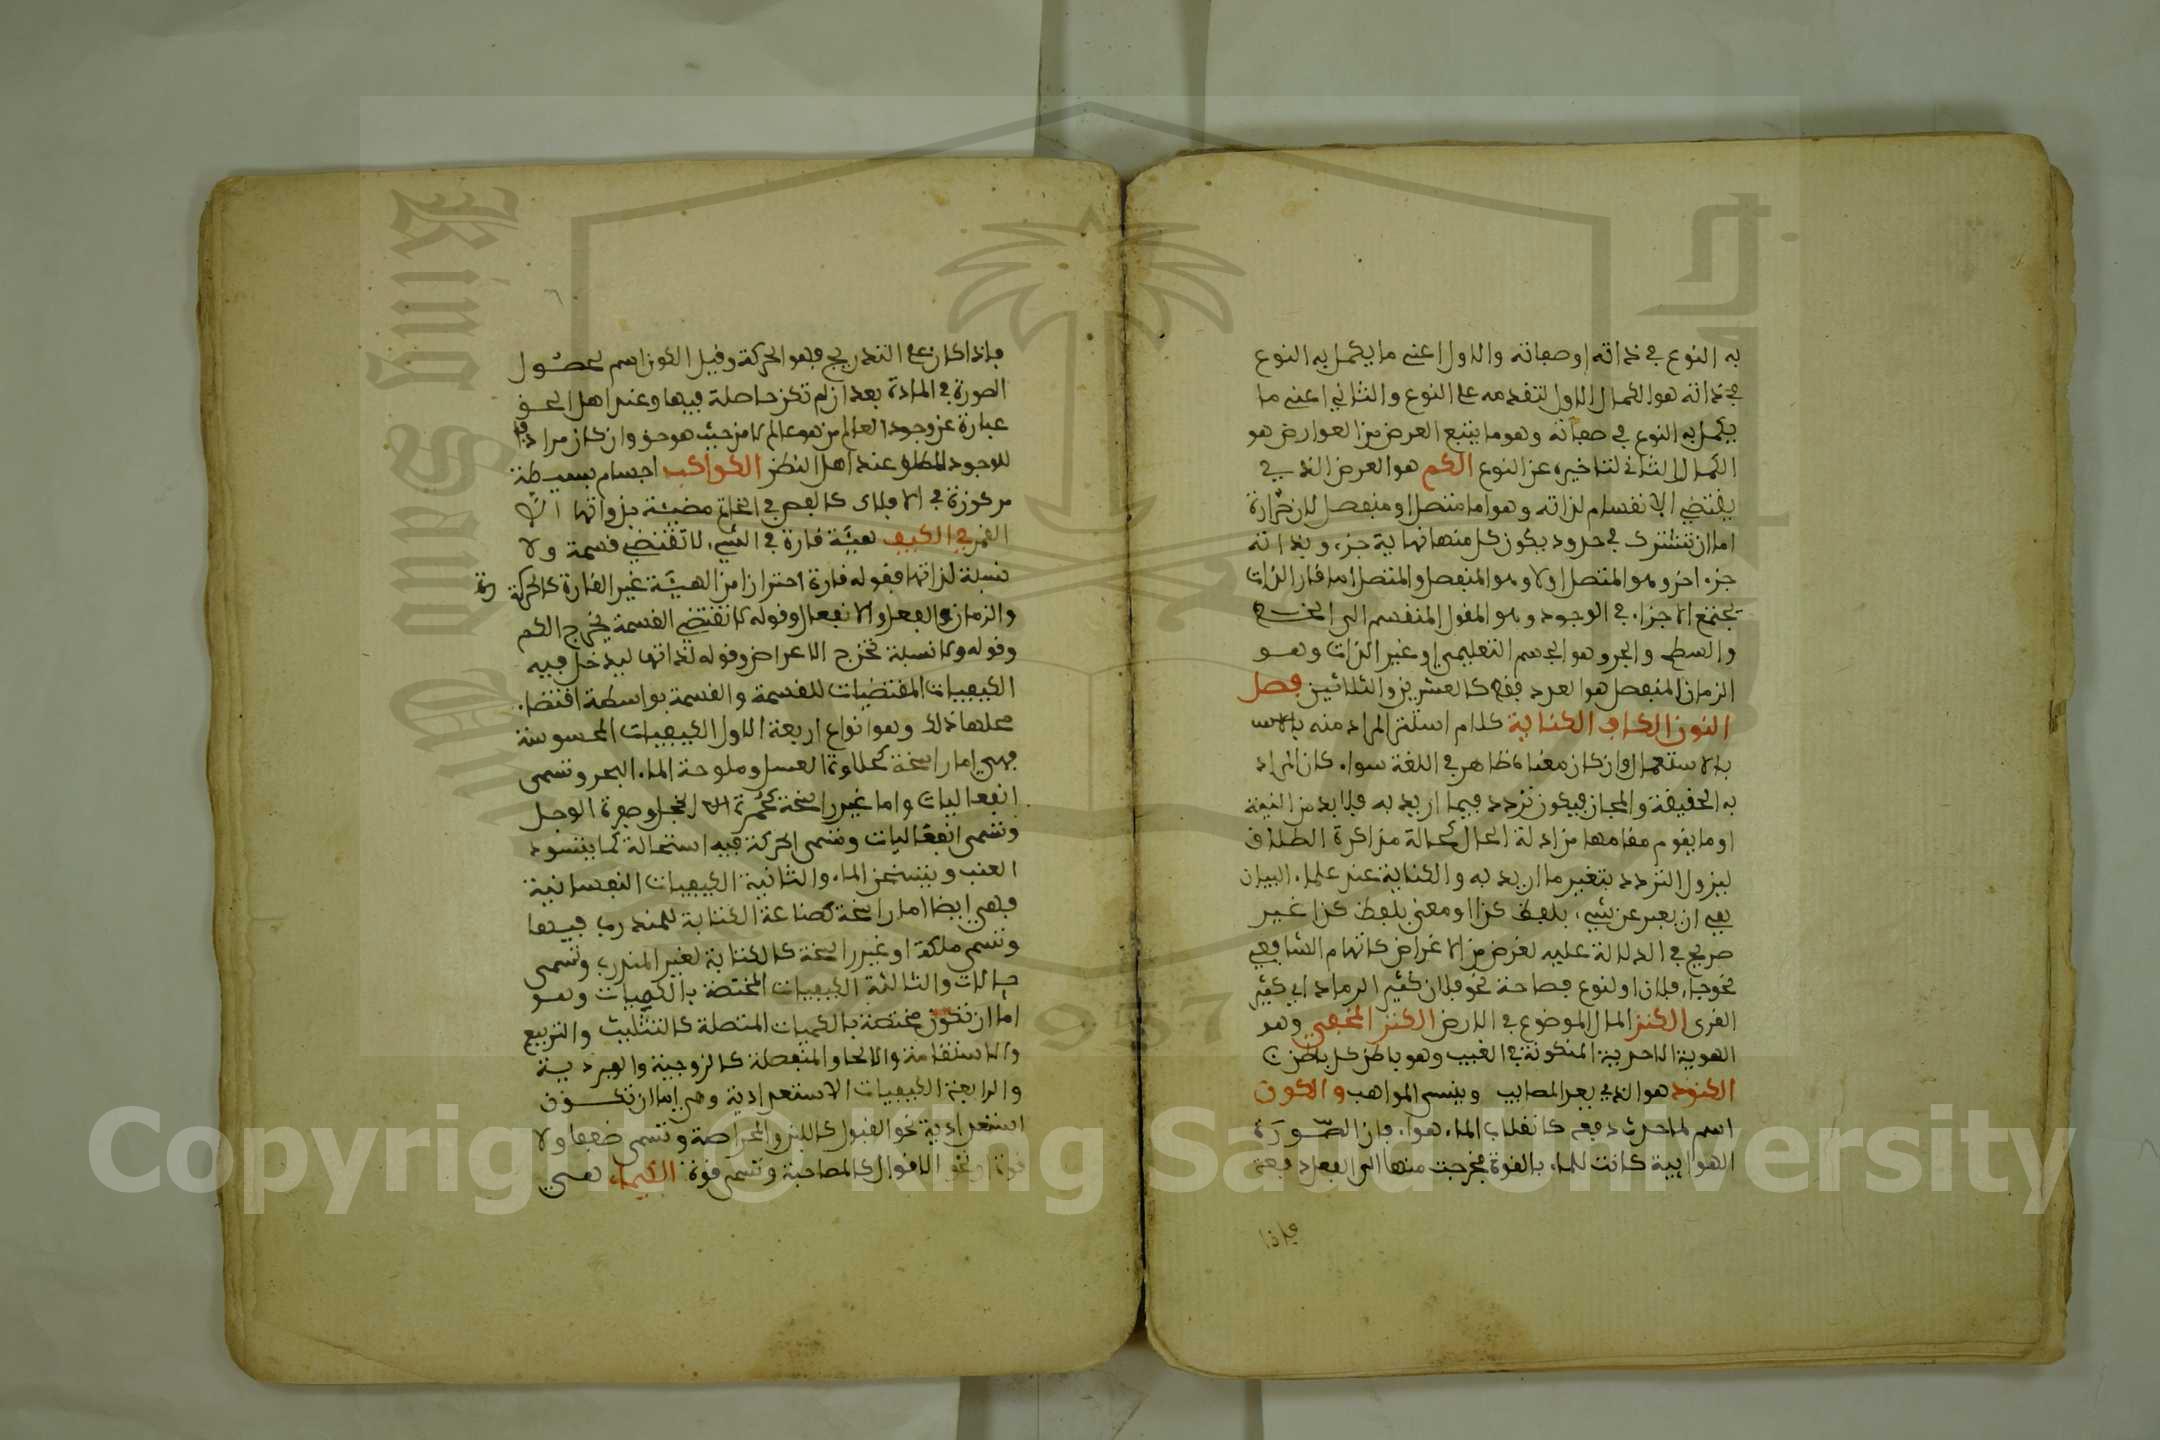 به النوع في ذاته او صفاته والاول اعني ما يكمل به النوع
في ذاته هو الكمال الاول لتقدمه على النوع والثاني اعني ما
يكمل به النوع في صفاته وهو ما يتبع العرض من العوارض هو
الكمال الثاني لتاخيره عن النوع الكم هو العرض الذي
يقتضي الانقسام لذاته وهو اما متصل او منفصل لان
اما ان تشترك في حدود يكون كل منها نهاية جزء وبداته
جزء اخر وهو المتصل او لا وهو المنفصل والمتصل اما قار الذات
يجتمع الاجزاء في الوجود وهو المقول المنقسم الى الخط
والسطح والجر وهو الجسم التعليمي او غير الذات وهو
الزمان المنفصل هو العدد فقط كالعشرين والثلاثين فصل
النون الكاف الكناية كلام استتر المراد منه بالاس
بالاستعمال وان كان معناه ظاهر في اللغة سواء كان المراد
به الحقيقة والمجاز فيكون تردد فيما اريد به فلا بد من النية
او ما يقوم مقامها من ادلة الحال كحالة مذاكرة الطلاق
ليزول التردد بتغير ما اريد به والكناية عند علماء البيان
يعي ان يعبر عن شيء بلفظ كذا او معنى بلفظ كذا غير
صريح في الدلالة عليه لغرض من الاغراض كاتهام الشافعي
نحو جاء فلان او لنوع فصاحة نحو فلان كثير الرماد اي كثير
القرى الكنز المال الموضوع في الارض الكنز المخفي وهو
الهوية الاحدية المتكونة في الغيب وهو باطن كل باطن
الكنود هو الذي يعد المصايب وينسى المواهب والكون
اسم لما حدث دفعه كانقلاب الماء هواء فان الصورة
الهوايية كانت للماء بالقوة فخرجت منها الى الفعل دفعة
فاذا
فاذا كان على التدريج فهو الحركة وقيل الكون اسم لحصول
الصورة في المادة بعد ان لم تكن حاصلة فيها وعند اهل الحق
عبارة عن وجود العالم من هو عالم لا من حيث هو حق وان كان مرادفا
للوجود المطلق عند اهل النظر الكواكب اجسام بسيطة
مركوزة في الافلاك كالفص في الخاتم مضيئة بذواتها الا
القمر في الكيف هيئة قارة في الشيء لا تقتضي قسمة ولا
نسبة لذاتها فقوله قارة احترازا من الهيئة غير القارة كالحركة
والزمان والفعل والانفعال وقوله لا تقتضي القسمة يخرج الكم
وقوله ولا نسبة تخرج الاعراض وقوله لذاتها ليدخل فيه
الكيفيات المقتضيات للقسمة والقسمة بواسطة اقتضاء
محلها ذلك وهو انواع اربعة الاول الكيفيات المحسوسة
فهي اما راسخة كحلاوة العسل وملوحة الماء البحر وتسمى
انفعاليات واما غير راسخة كحمرة الخجل وصفرة الوجل
وتسمى انفعاليات وتسمى الحركة فيه استحالة كما يتسود
العنب ويتسخن الماء والثانية الكيفيات النفسانية
فهي ايضا اما راسخة كصناعة الكتابة للمتدرب فيها
وتسمى ملكة او غير راسخة كالكتابة لغير المتدرب وتسمى
حالات والثالثة الكيفيات المختصة بالكميات وهو
اما ان تكون مختصة بالكميات المتصلة كالتثليث والتربيع
والاستقامة والانحا والمنفصلة كالزوجية والفردية
والرابعة الكيفيات الاستعدادية وهي اما ان تكون
استعدادية نحو القبول كاللين والمحراصة وتسمى ضعفا ولا
قوة او نحو اللاقبول كالمصاحبة وتسمى قوة الكيمياء هي
Copyright © King Saud University
King Saud University
1957